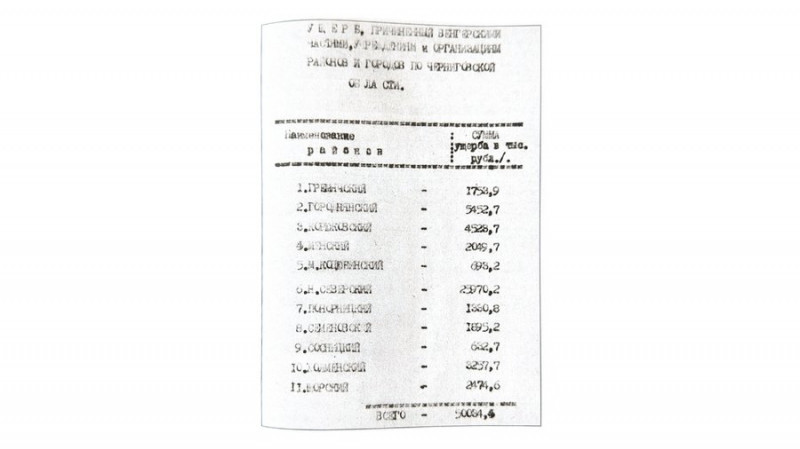 УЩЕРБ, ПРИЧИНЕННЫЙ ВЕНГЕРСКИМИ
ЧАСТЯМИ, УЧРЕЖДЕНИЯМ И ОРГАНИЗАЦИЯМ
РАЙОНОВ И ГОРОДОВ ПО ЧЕРНИГОВСКОЙ
ОБЛАСТИ.
Наименование районов
СУММА
ущерба в тыс.
рубл./.
1. ГРЕМЯЧСКИЙ - 1753,9
2. ГОРОДНЯНСКИЙ - 5452,7
3. КОРЮКОВСКИЙ - 4528,7
4. МЕНСКИЙ - 2049,7
5. М.КОЦЮБИНСКИЙ - 693,2
6. Н.СЕВЕРСКИЙ - 25970,2
7. ПОНОРНИЦКИЙ - 1330,8
8. СЕМЕНОВСКОЙ - 1895,2
9. СОСНИЦКИЙ - 632,7
10. ХОЛМЕНСКИЙ - 3257,7
11. ЩОРСКИЙ - 2474,6
ВСЕГО - 50034,4